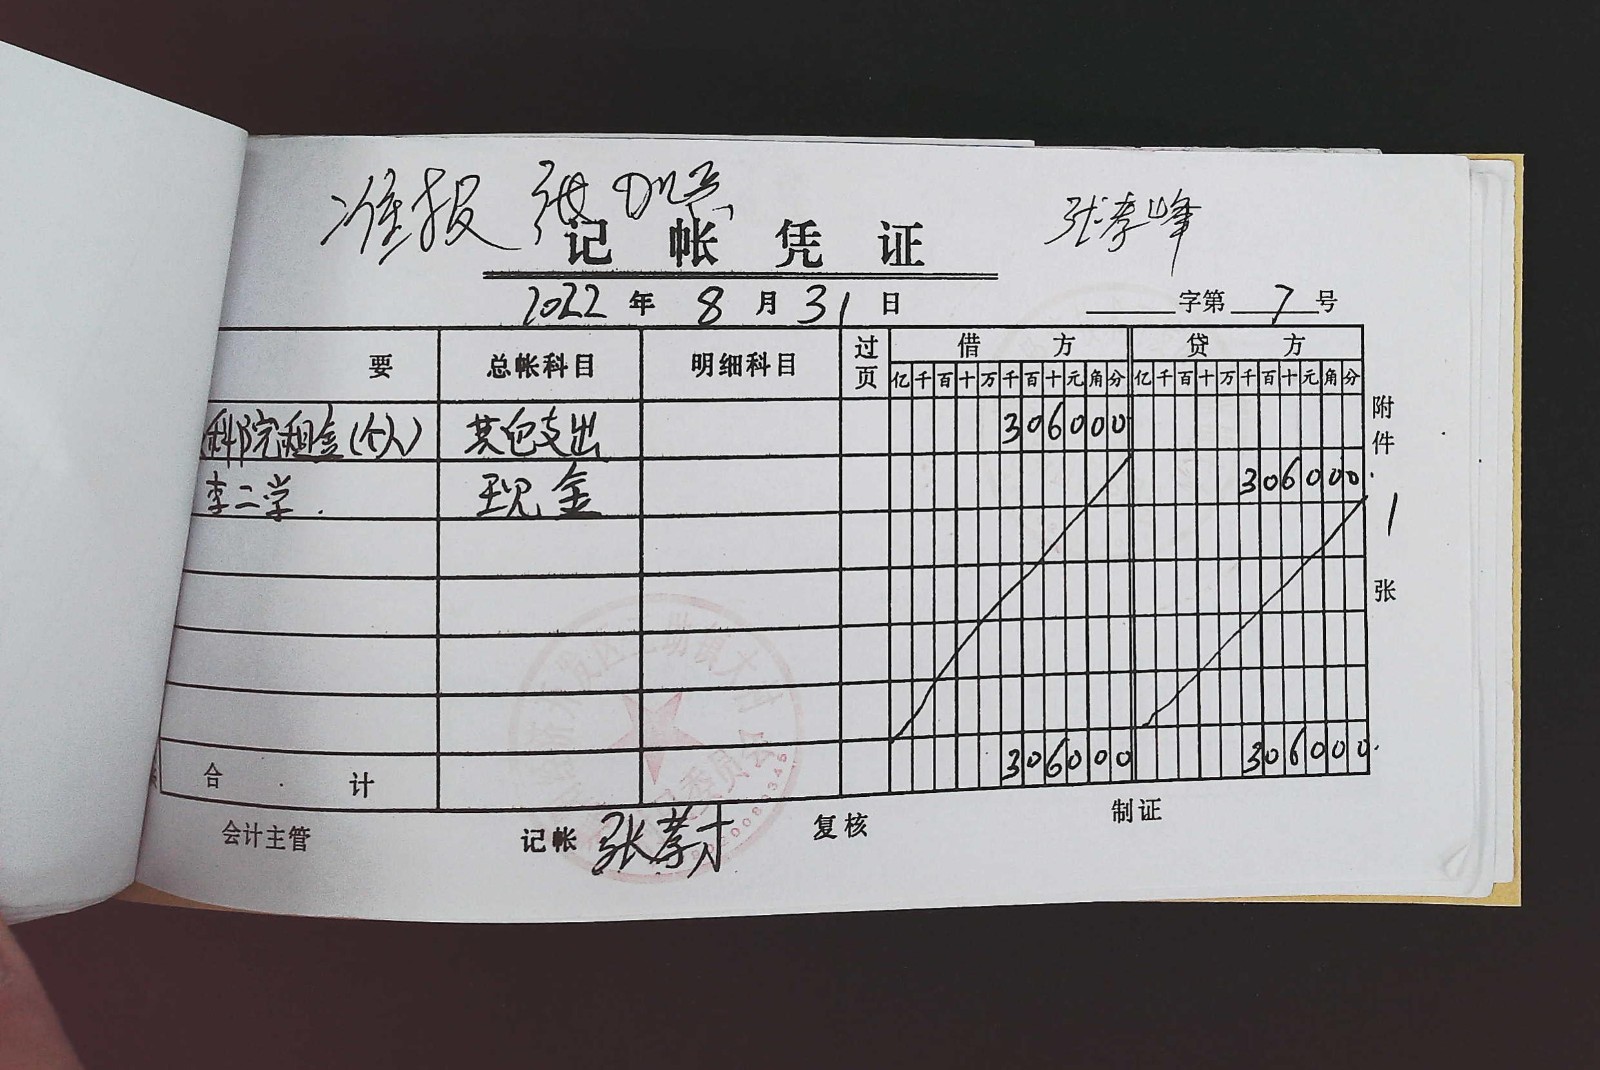 准报 张
张孝峰
记帐凭证
2022年8月31日 字第7号
要 总帐科目 明细科目 过页 借方 贷方
亿千百十万千百十元角分 亿千百十万千百十元角分
科院租金(个人) 其他支出 306000
李二学 现金 306000
附件1张
合计 306000 306000
会计主管 记帐 张孝才 复核 制证